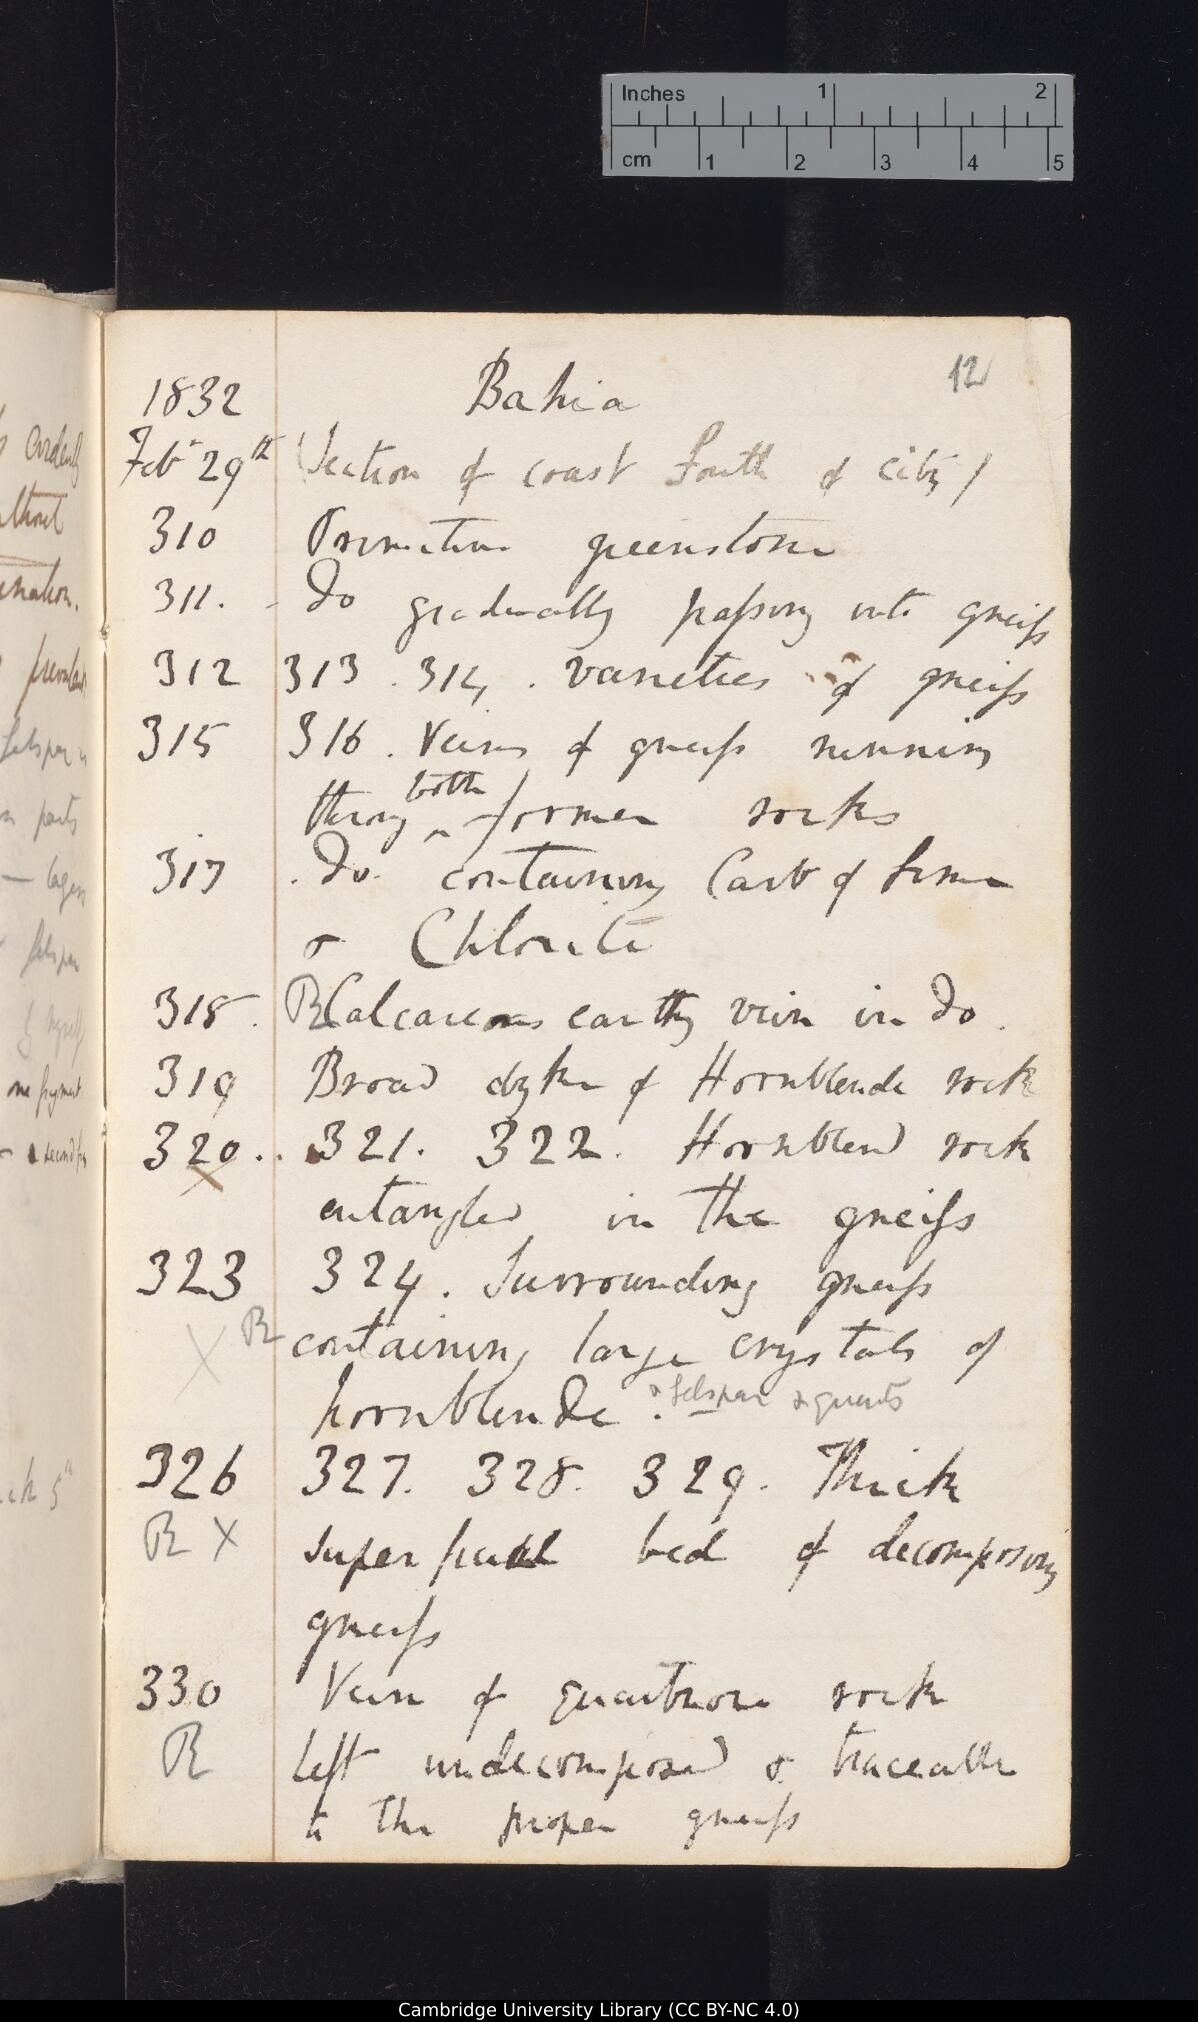 Inches 1 2
cm 1 2 3 4 5
12
1832 Bahia
Feb 29th (Section of coast South of city)
310 Primitive greenstone
311. Do gradually passing into gneiss
312 313. 314. varieties of gneiss
315 316. Veins of gneiss running
throug both former rocks
317 Do. containing Carb of Lime
& Chlorite
318. R Calcareous earthy vein in Do.
319 Broad dyke of Hornblende rock
320.. 321. 322. Hornblend rock
X entangled in the gneiss
323 324. Surrounding gneiss
X R containing large crystals of
hornblende. & felspar & quartz
326 327. 328. 329. Thick
R X superficial bed of decomposing
gneiss
330 Vein of quartzose rock
R left undecomposed & traceable
to the proper gneiss
Cambridge University Library (CC BY-NC 4.0)